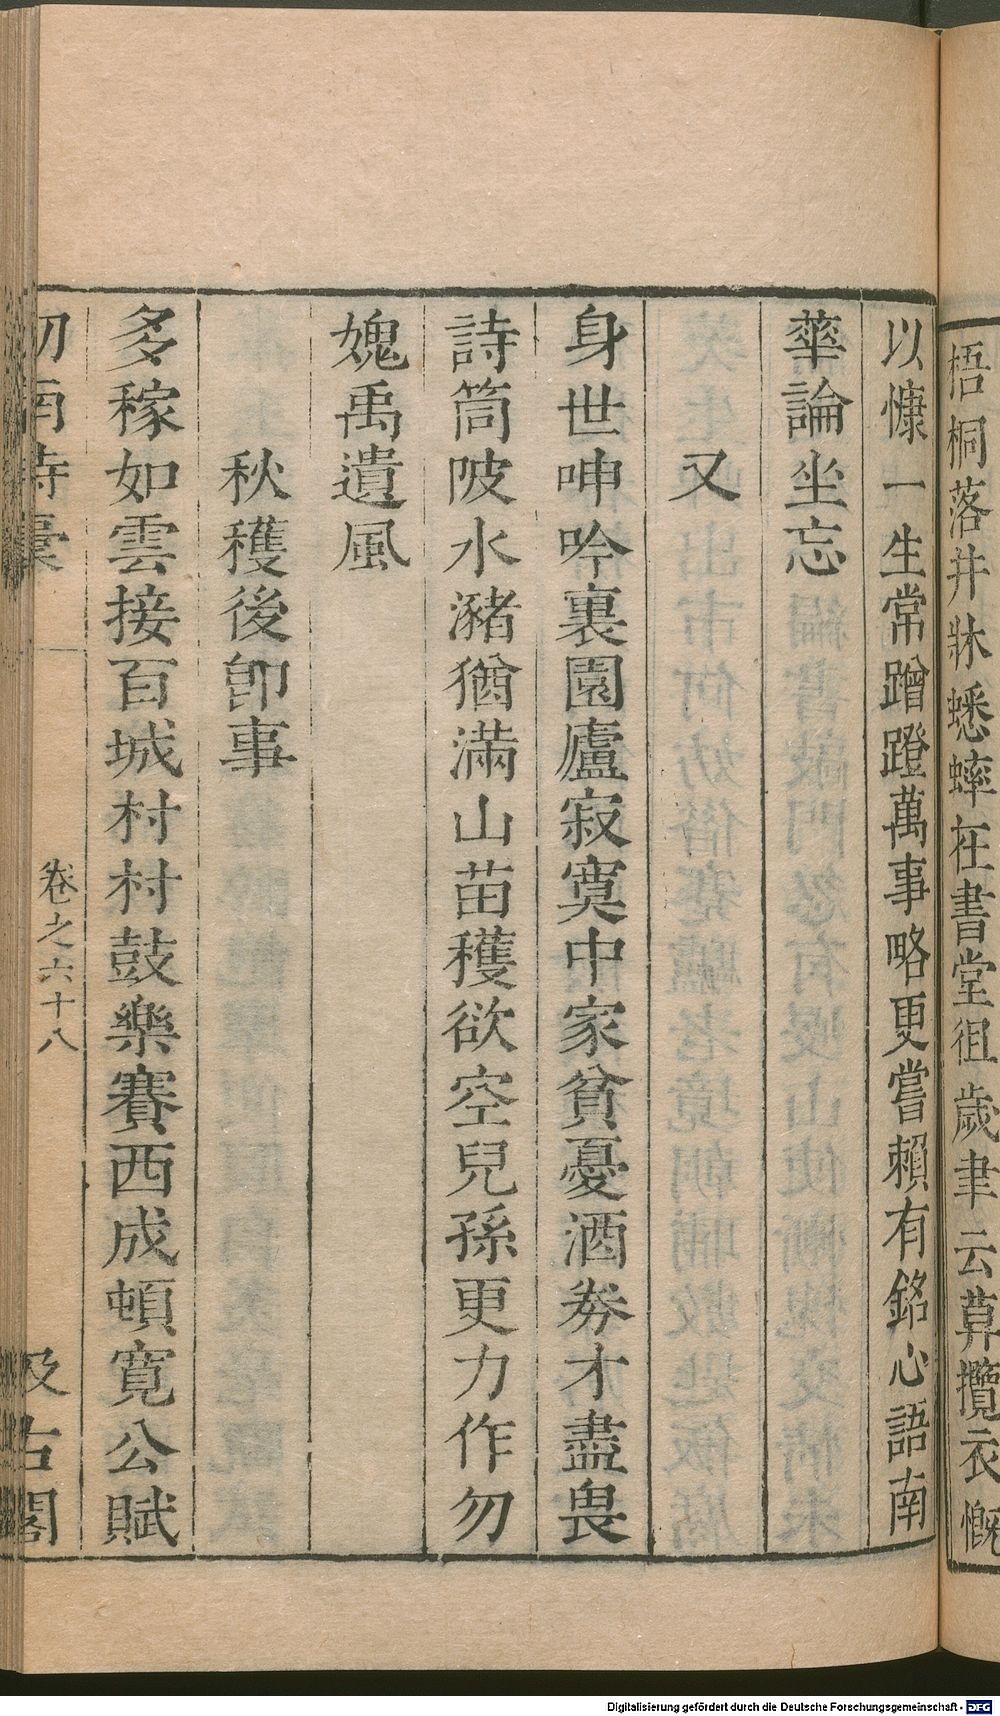 梧桐落井牀蟋蟀在書堂徂歲聿云莫攬衣慨
以慷一生常蹭蹬萬事略更嘗賴有銘心語南
華論坐忘
又
身世呻吟裏園廬寂寞中家貧憂酒券才盡畏
詩筒陂水瀦猶滿山苗穫欲空兒孫更力作勿
媿禹遺風
秋穫後卽事
多稼如雲接百城村村鼓樂賽西成頓寬公賦
劍南詩稾
卷之六十八
汲古閣
Digitalisierung gefördert durch die Deutsche Forschungsgemeinschaft - DFG